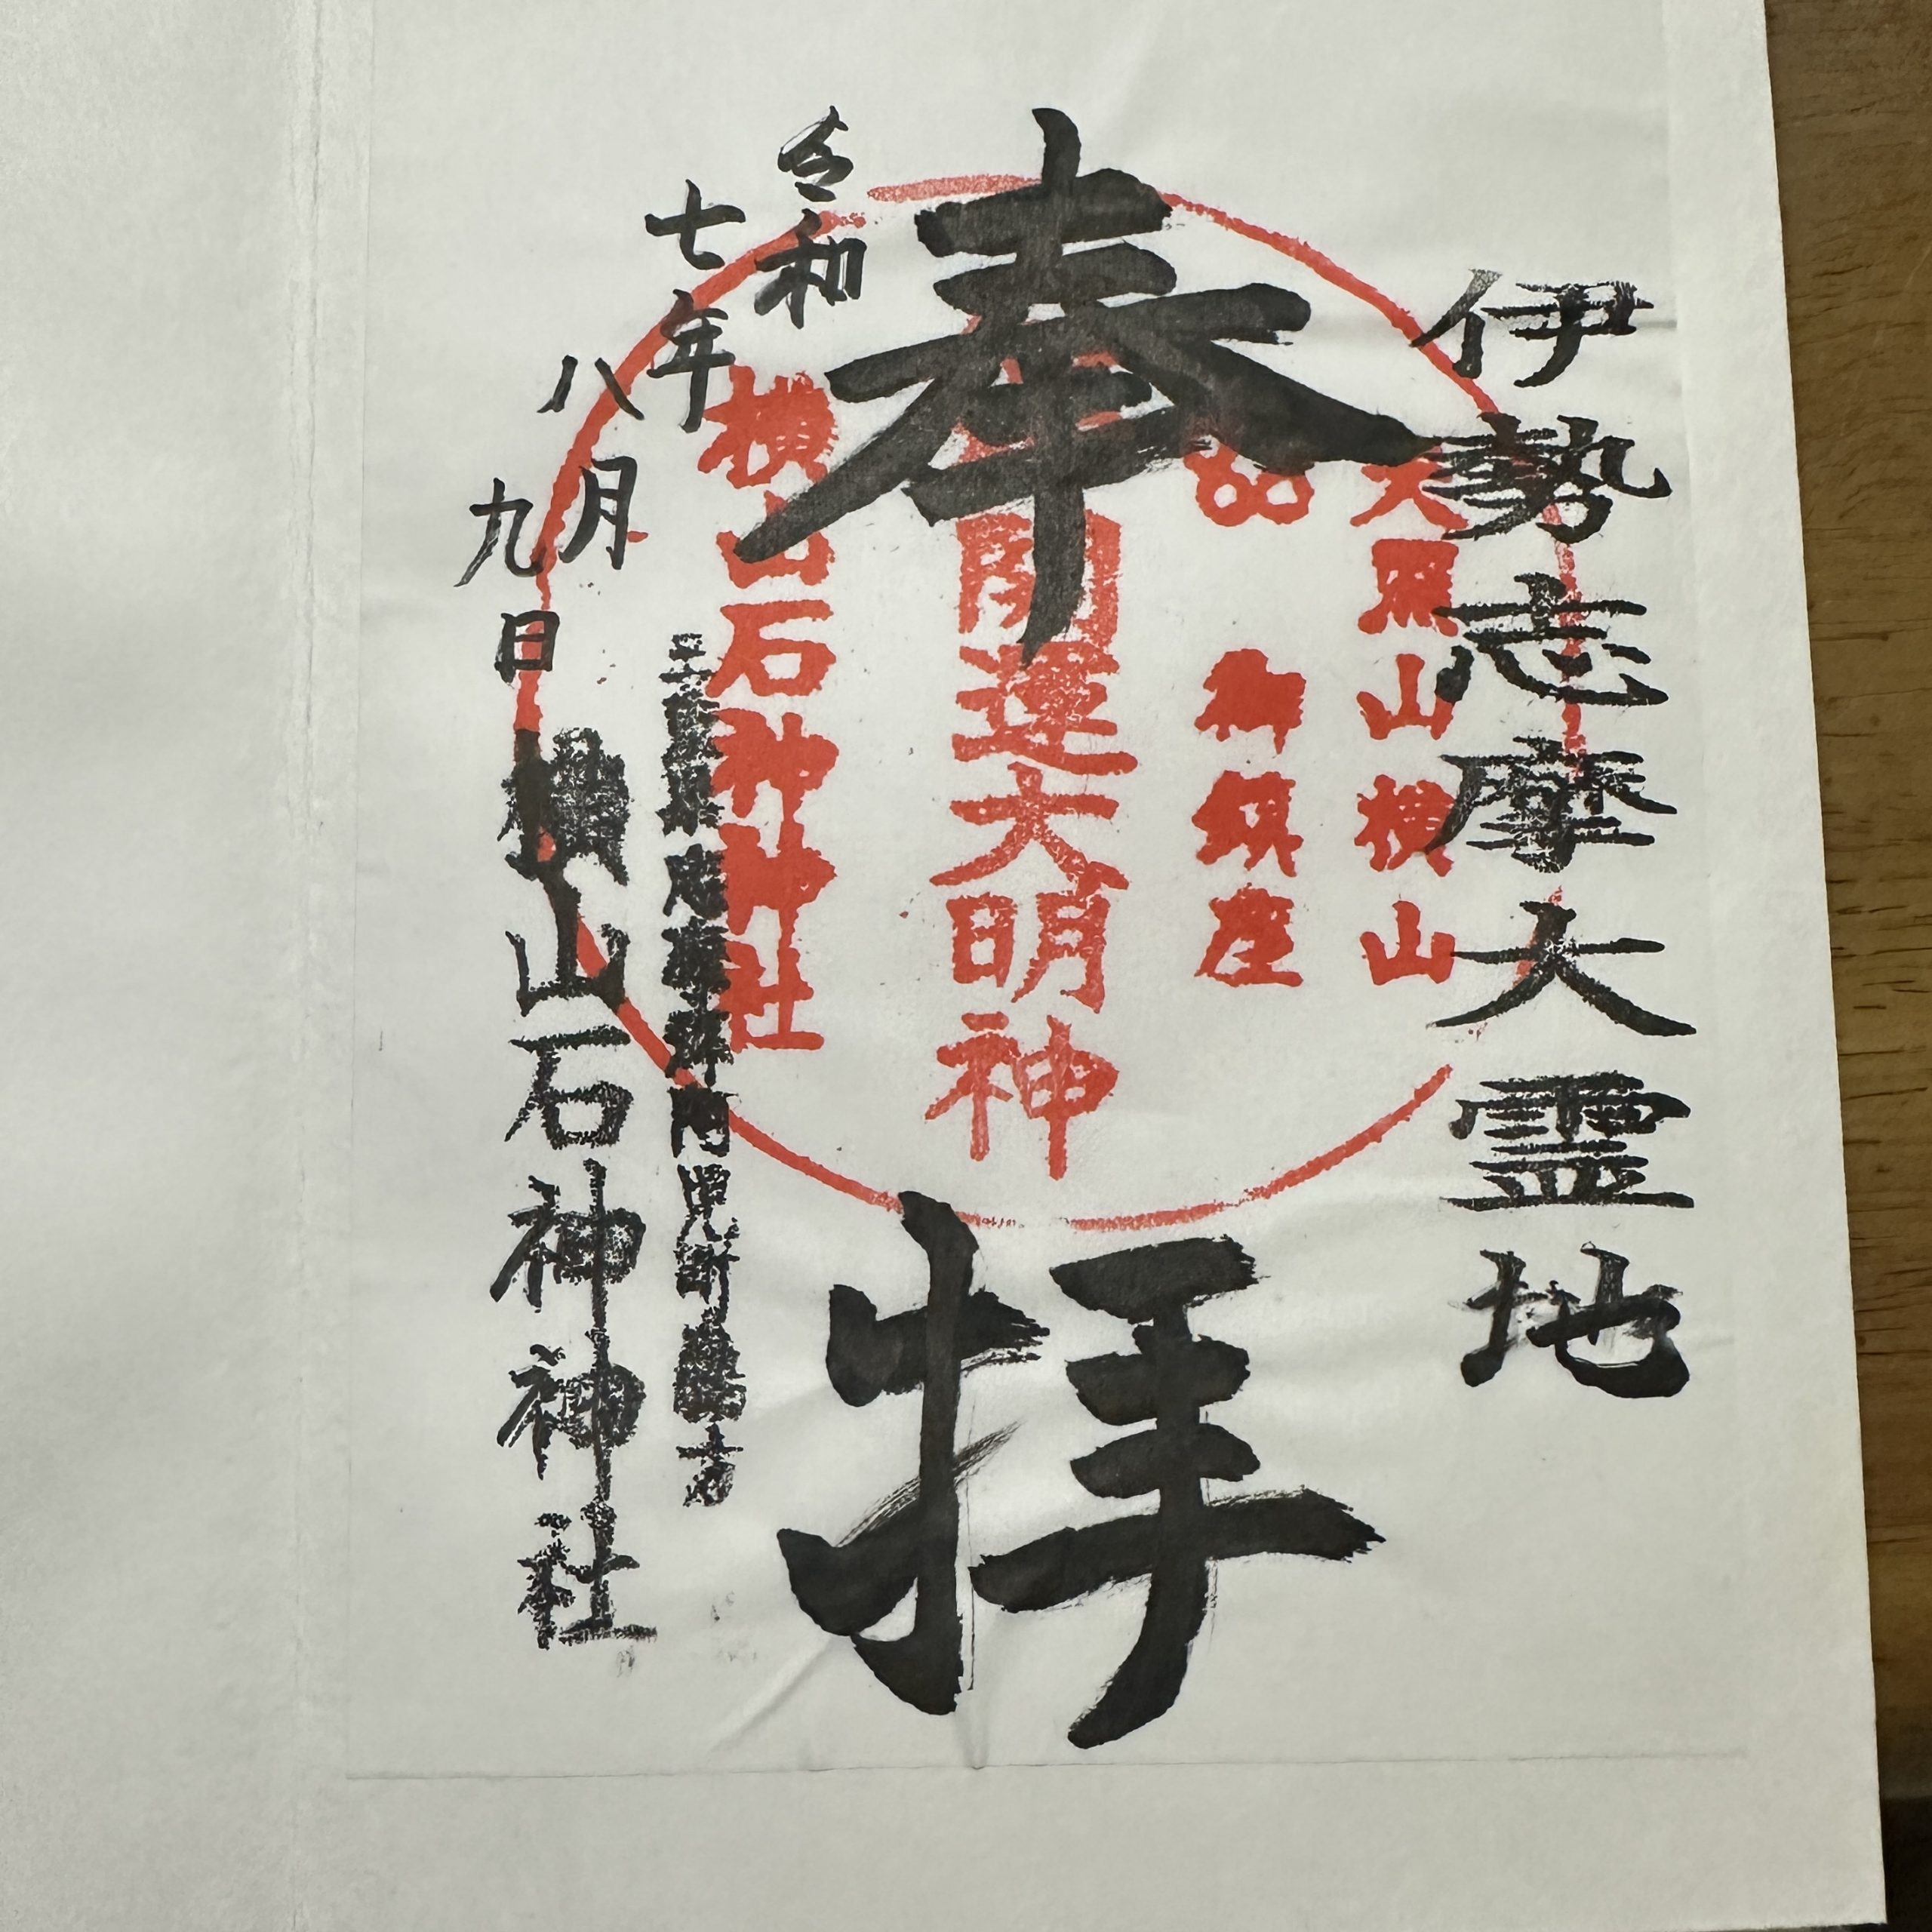 伊勢志摩大霊地
天照山横山
御鎮座
奉拝
開運大明神
横山石神神社
令和
七年
八月
九日
三重県志摩市阿児町鵜方
横山石神神社